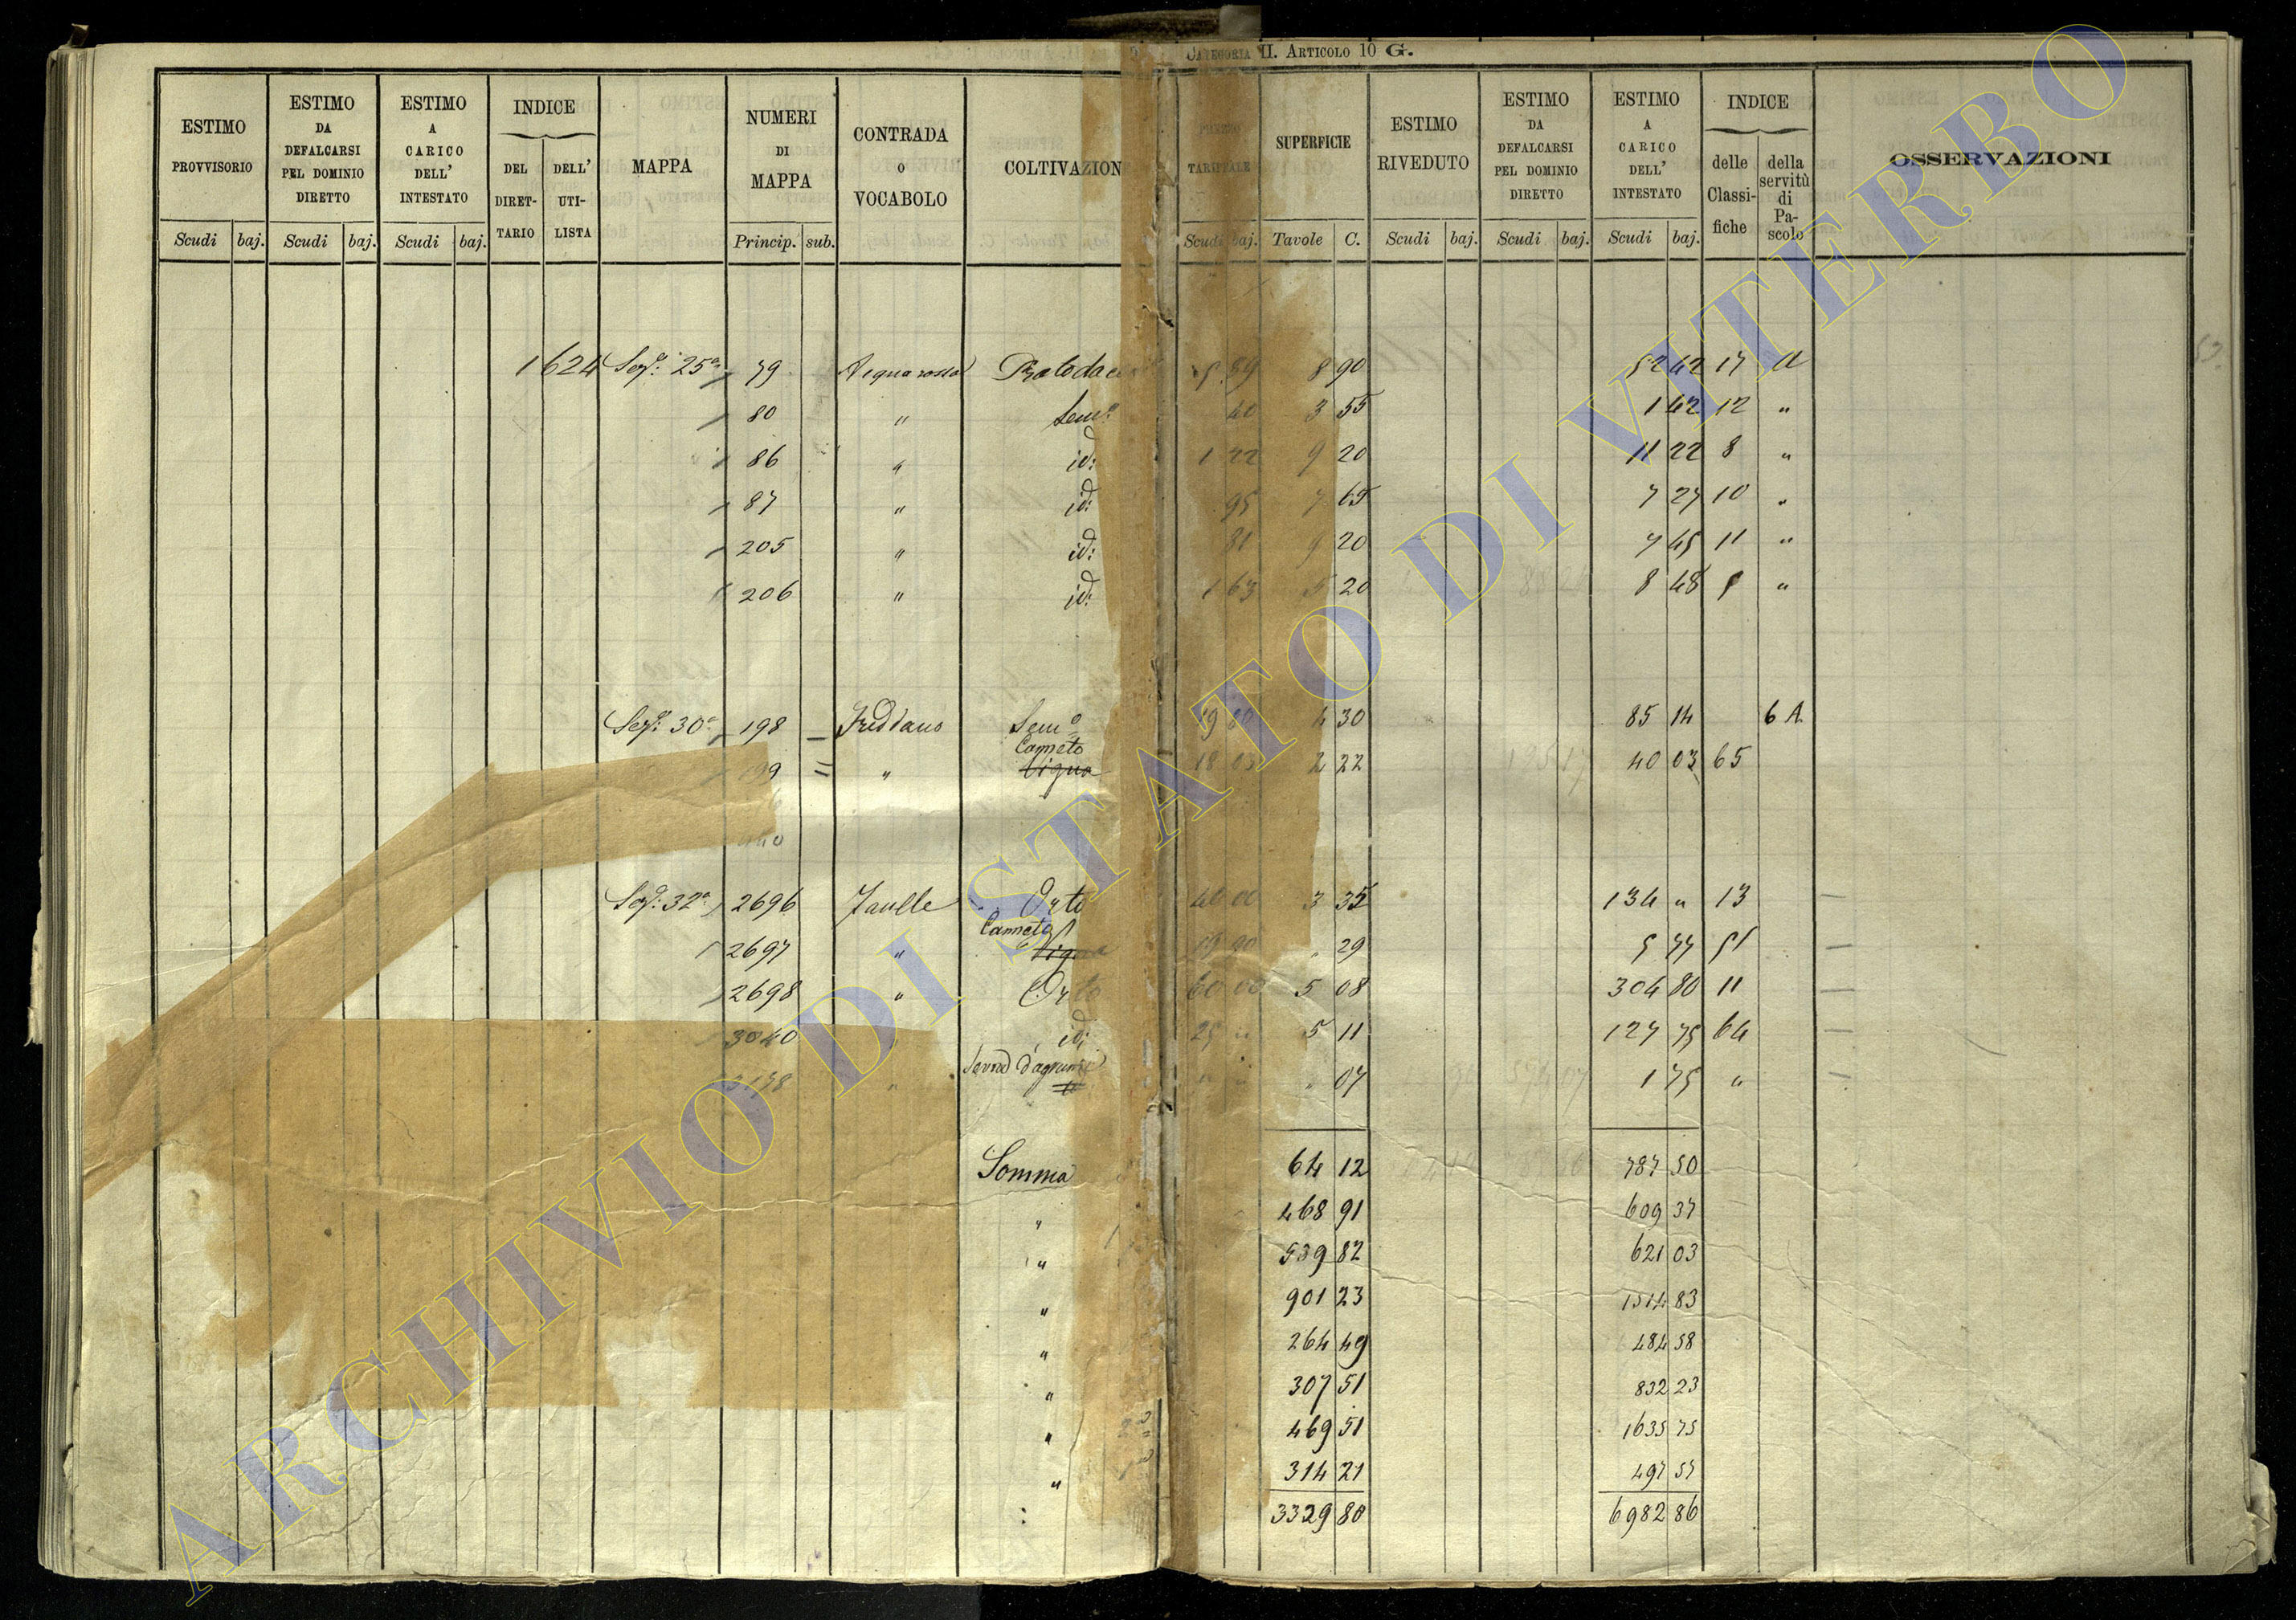 CATEGORIA II. ARTICOLO 10 G.
ESTIMO PROVVISORIO Scudi baj. | ESTIMO DA DEFALCARSI PEL DOMINIO DIRETTO Scudi baj. | ESTIMO A CARICO DELL' INTESTATO Scudi baj. | INDICE DEL DIRETTARIO DELL' UTILISTA | MAPPA | NUMERI DI MAPPA Princip. sub. | CONTRADA o VOCABOLO | COLTIVAZION | PREZZO TARIFFALE Scudi baj. | SUPERFICIE Tavole C. | ESTIMO RIVEDUTO Scudi baj. | ESTIMO DA DEFALCARSI PEL DOMINIO DIRETTO Scudi baj. | ESTIMO A CARICO DELL' INTESTATO Scudi baj. | INDICE delle Classifiche della servitù di Pascolo | OSSERVAZIONI
1624 Sez: 25a 79 Acqua rossa 5 89 8 90 52 42 17 A
80 " Sem:o 40 3 55 1 42 12 "
86 " id: 1 22 9 20 11 22 8 "
87 " id: 95 7 65 7 27 10 "
205 " id: 81 9 20 7 45 11 "
206 " id: 1 63 5 20 8 48 9 "
Sez: 30a 198 Freddano Sem:o 19 80 4 30 85 14 6 A
Canneto
199 " Vigna 18 03 2 22 40 03 65
Sez: 32a 2696 Faulle Orto 40 00 3 35 134 " 13
Canneto
2697 " Vigna 19 90 " 29 5 77 51
2698 " Orto 60 00 5 08 304 80 11
3040 id: 25 " 5 11 127 75 64
" d'agrumi " " " 07 1 75 "
Somma 64 12 787 50
" 468 91 609 37
" 539 82 621 03
" 901 23 1514 83
" 264 49 484 58
" 307 51 832 23
" 469 51 1635 75
" 314 21 497 57
3329 80 6982 86
ARCHIVIO DI STATO DI VITERBO